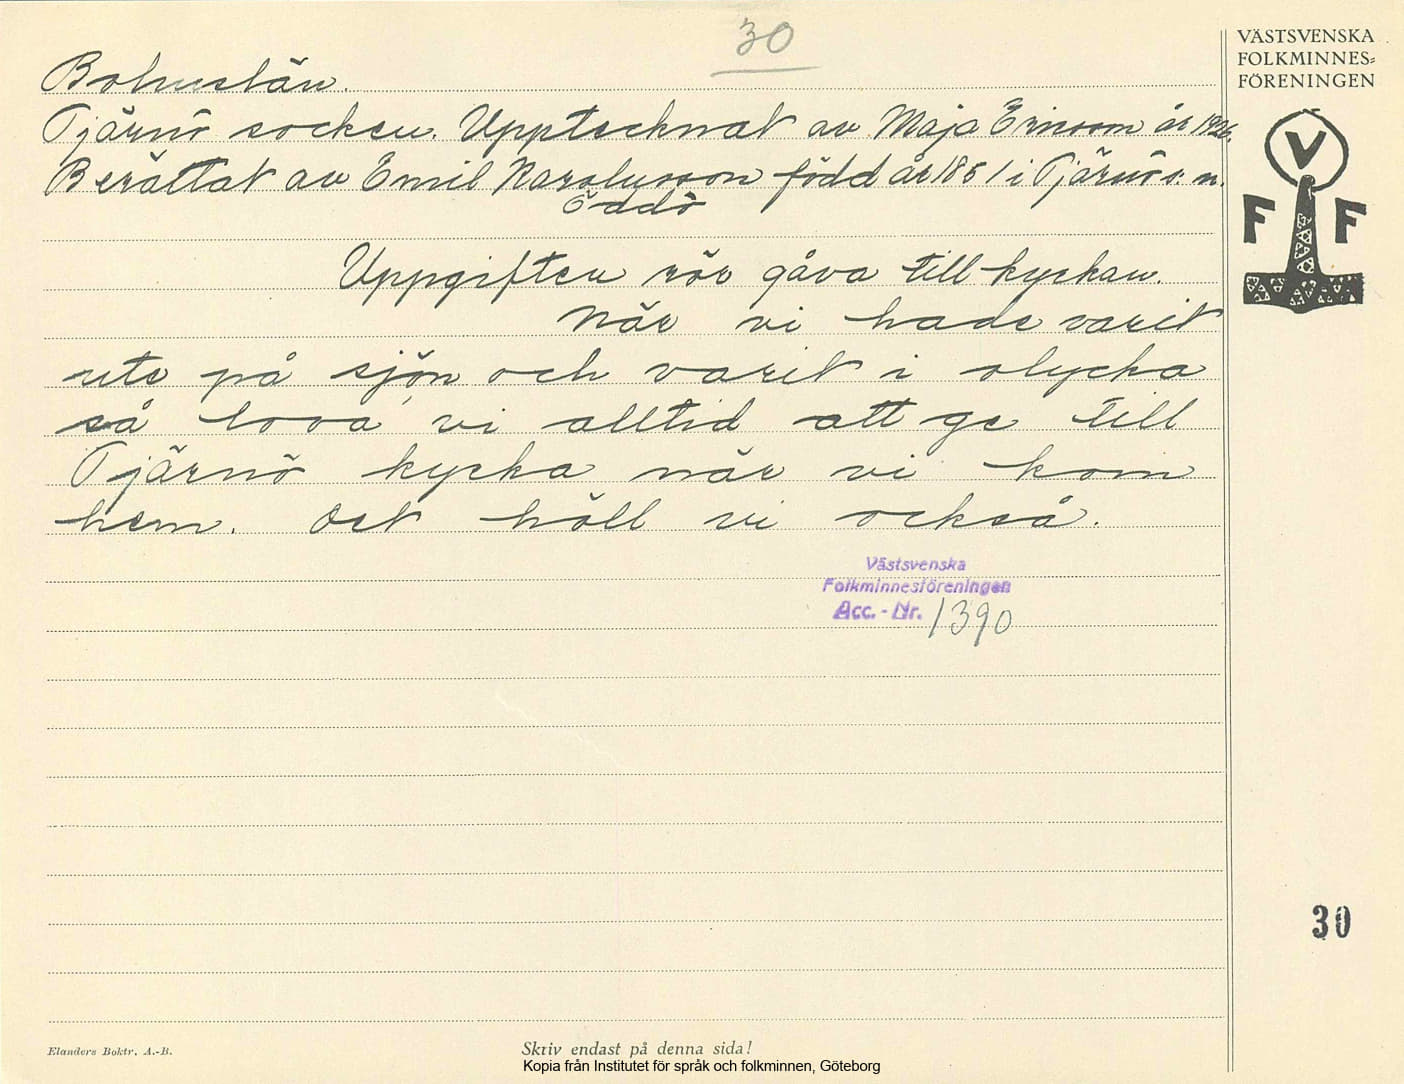 30
VÄSTSVENSKA
FOLKMINNES=
FÖRENINGEN
Bohuslän.
Tjärnö socken. Upptecknat av Maja Ericson år 1926.
Berättat av Emil Karolusson född år 1861 i Tjärnö s. n.
Öddö
V
F F
Uppgiften rör gåva till kyrkan.
När vi hade varit
ute på sjön och varit i olycka
så lova' vi alltid att ge till
Tjärnö kyrka när vi kom
hem. Det höll vi också.
Västsvenska
Folkminnesföreningen
Acc. - Nr. 1390
30
Elanders Boktr. A.-B.
Skriv endast på denna sida!
Kopia från Institutet för språk och folkminnen, Göteborg